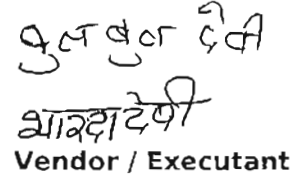 बुलबुल देवी
शारदा देवी
Vendor / Executant